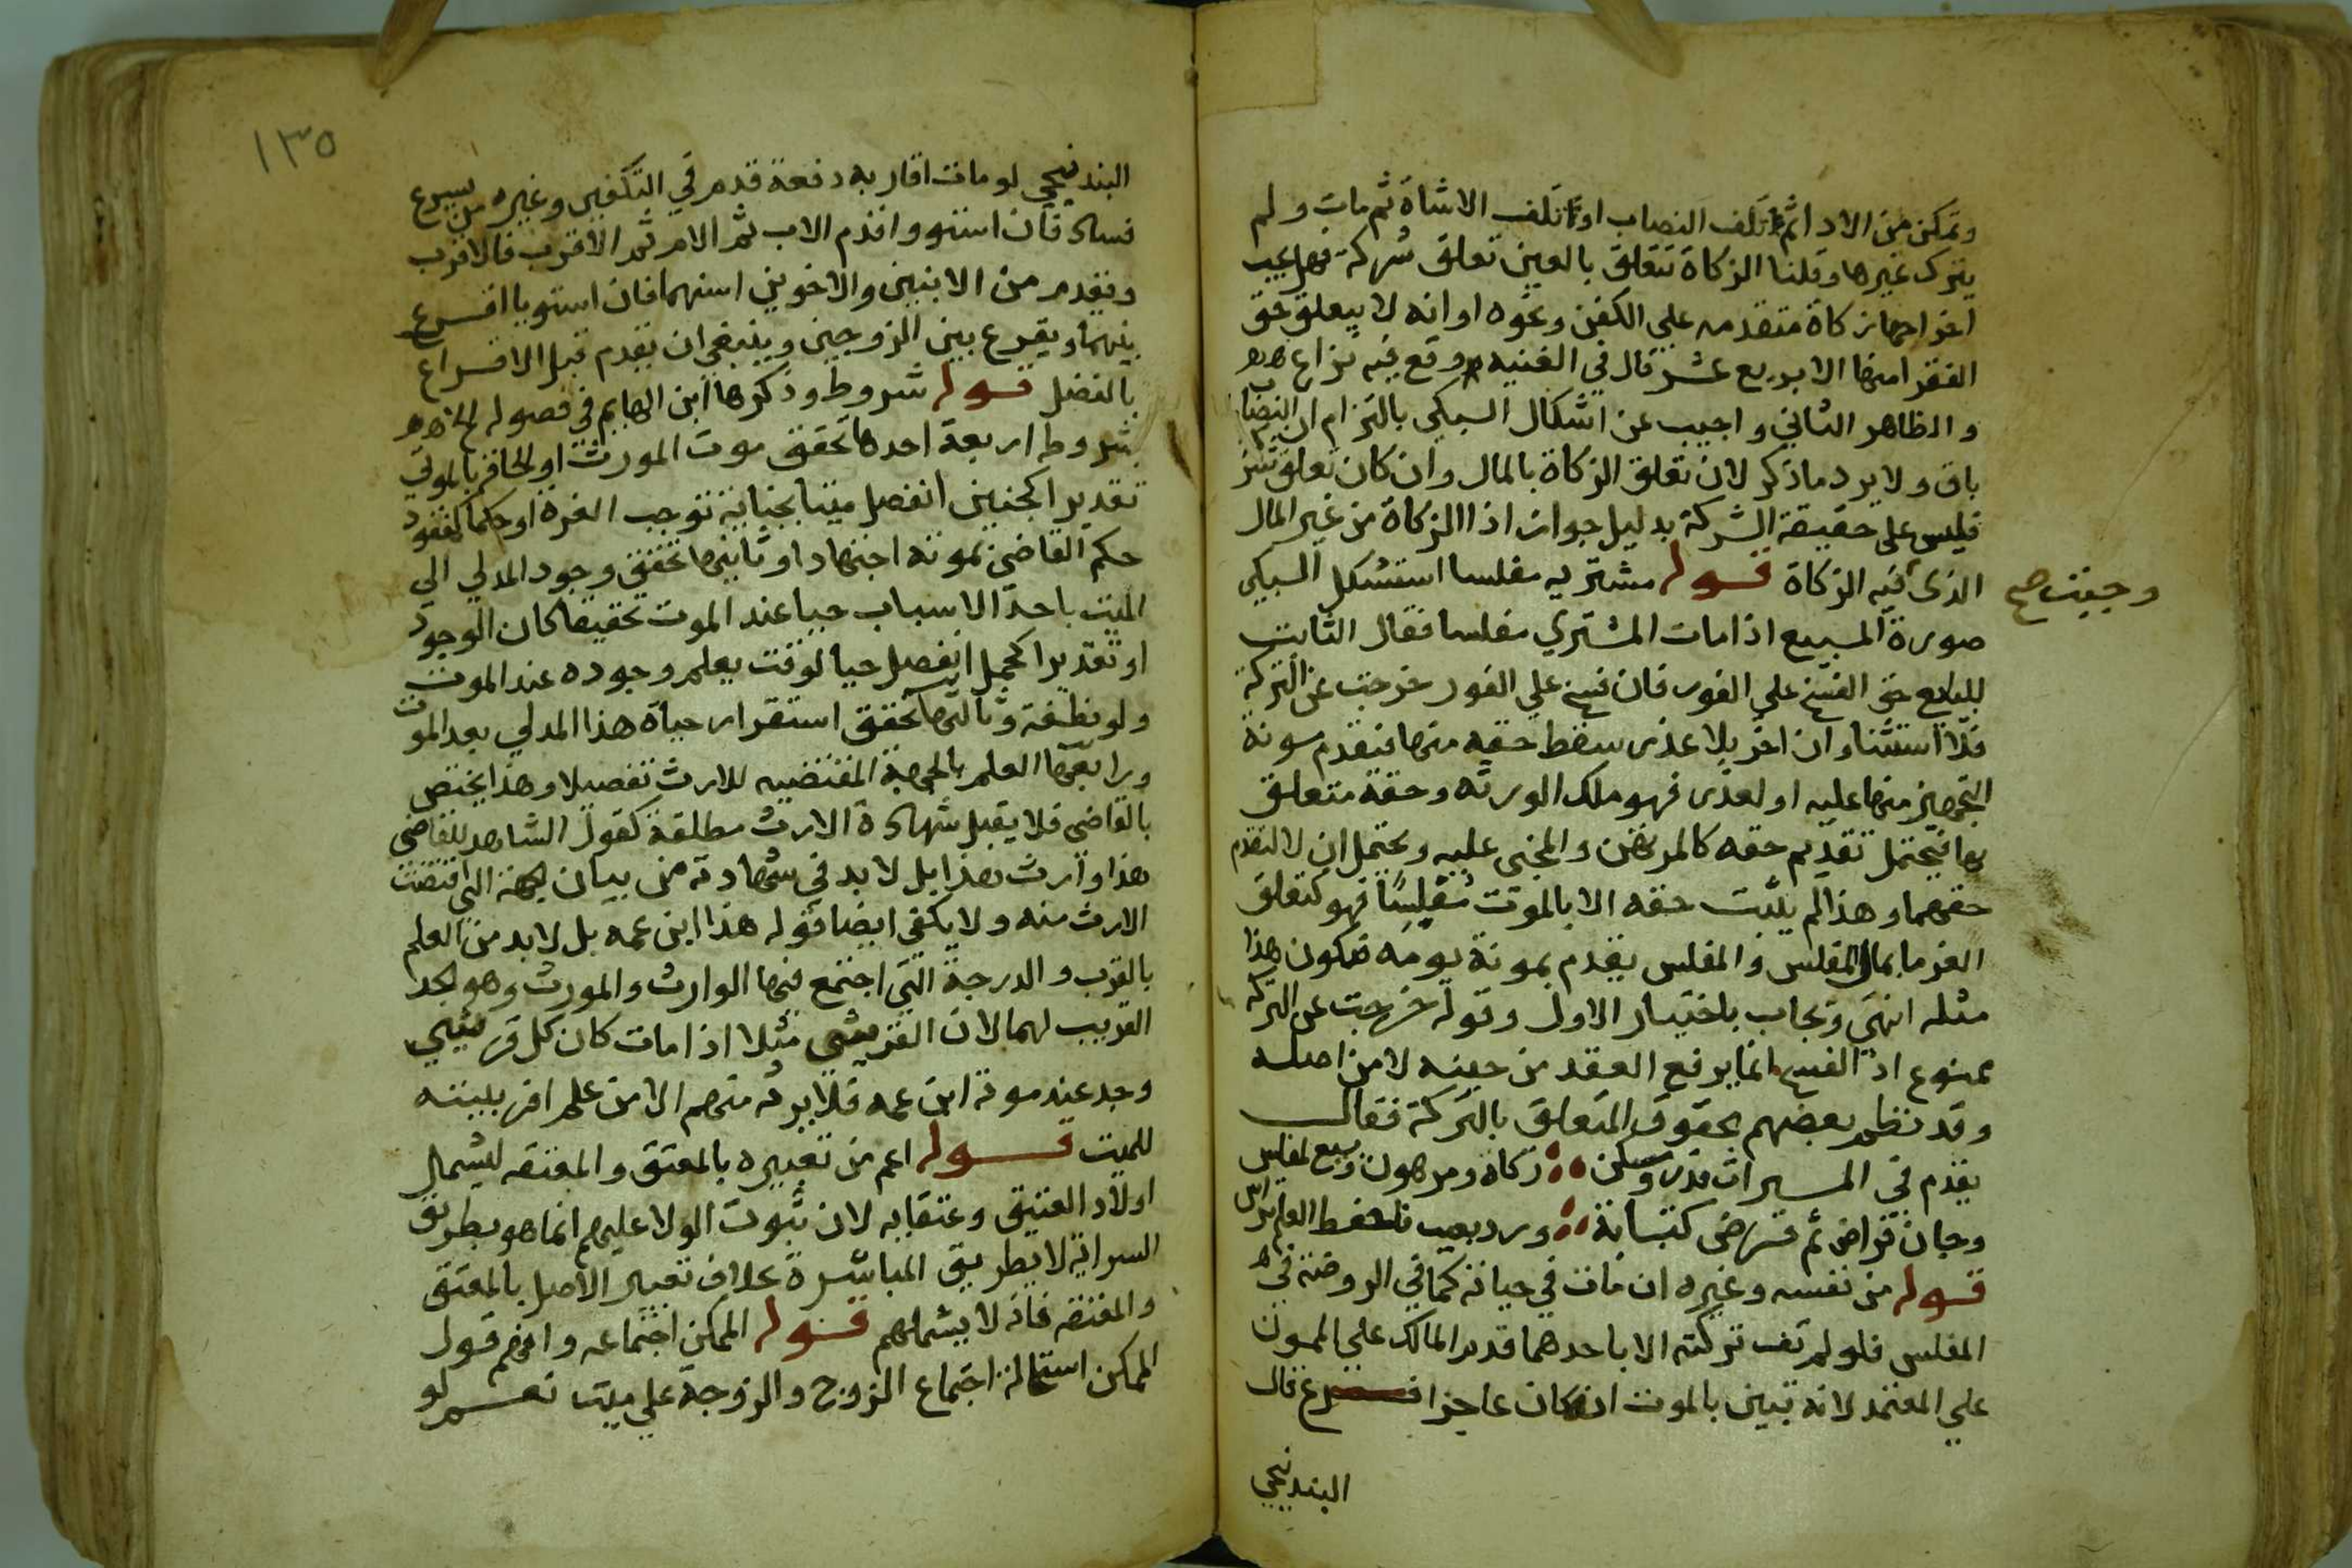 وتمكن من الادا ثم تلف النصاب او تلف الا شاة ثم مات ولم
يترك غيرها وقلنا الزكاة تتعلق بالعين تعلق شركة فهل يجب
اخراجها زكاة متقدمه على الكفن ونحوه او انه لا يتعلق حق
الفقرا منها الا بربع عشر قال في الغنيه ووقع فيه نزاع
والظاهر الثاني واجيب عن اشكال السبكي بالتزام ان النصاب
باق ولا يرد ما ذكر لان تعلق الزكاة بالمال وان كان تعلق شركة
فليس على حقيقة الشركة بدليل جواز اذا الزكاة من غير المال
الذي فيه الزكاة قوله مشتريه مفلسا استشكل السبكي
وجبت صح
صورة المبيع اذا مات المشتري مفلسا فقال الثابت
للبايع حق الفسخ على الفور فان فسخ علي الفور خرجت عن التركة
فلا استثنا وان اخر بلا عذر سقط حقه منها فتقدم مونة
التجهيز منها عليه او لعذر فهو ملك الورثه وحقه متعلق
بها فيحتمل تقديم حقه كالمرتهن والمجنى عليه ويحتمل ان لا لتقدم
حقهما وهذا لم يثبت حقه الا بالموت مفلسًا فهو كتعلق
الغرما بمال المفلس والمفلس يقدم بمونة يومه فيكون هذا
مثله انتهي ويجاب باختيار الاول وقوله خرجت عن التركة
ممنوع اذ الفسخ انما يرفع العقد من حينه لا من اصله
وقد نظم بعضهم الحقوق المتعلق بالتركة فقال
يقدم في الميراث نذر وسكن زكاة ومرهون وبيع لمفلس
وجان قراض ثم قرض كتابة ورد بعيب فاحفظ العلم تراس
قوله من نفسه وغيره ان مات في حياته كما في الروضة في
المفلس فلو لم تف تركته الا باحدهما قدم المالك على الممون
علي المعتمد لانه تبين بالموت انه كان عاجزا فرع قال
البندنيجي
١٣٥
البندنيجي لو مات اقاربه دفعة قدم في التكفين وغيره من يسرع
فساده فان استووا قدم الاب ثم الام ثم الاقرب فالاقرب
ويقدم من الابنين والاخوين اسنهما فان استويا اقرع
بينهما ويقرع بين الزوجين وينبغي ان يقدم قبل الاقراع
بالفضل قوله شروط وذكرها ابن الهايم في فصوله الخ
شروطه اربعة احدها تحقق موت المورث او الحاقه بالموتى
تقديرا كجنين انفصل ميتا بجناية توجب الغرة او حكما كمفقود
حكم القاضي بموته اجتهادا وثانيها تحقق وجود المدلي الي
الميت باحد الاسباب حيا عند الموت تحقيقا كان الوجود
او تقديرا كحمل انفصل حيا لوقت يعلم وجوده عند الموت
ولو نطفة وثالثها تحقق استقرار حياة هذا المدلي بعد الموت
ورابعها العلم بالجهة المقتضيه للارث تفصيلا وهذا يختص
بالقاضي فلا يقبل شهادة الارث مطلقة كقول الشاهد للقاضي
هذا وارث هذا بل لا بد في شهادته من بيان الجهة التي اقتضت
الارث منه ولا يكفي ايضا قوله هذا ابن عمه بل لا بد من العلم
بالقرب والدرجة التي اجتمع فيها الوارث والمورث وهو الجد
القريب لهما لان القريشي مثلا اذا مات كان كل قريشي
وجد عند موته ابن عمه فلا يرثه منهم الا من علم اقربيته
للميت قوله اعم من تعبيره بالمعتق والمعتقه ليشمل
اولاد العتيق وعتقايه لان ثبوت الولا عليهم انما هو بطريق
السراية لا بطريق المباشرة بخلاف تعبير الاصل بالمعتق
والمعتقه فانه لا يشملهم قوله الممكن اجتماعه وافهم قوله
الممكن استحالة اجتماع الزوج والزوجة علي ميت نعم لو